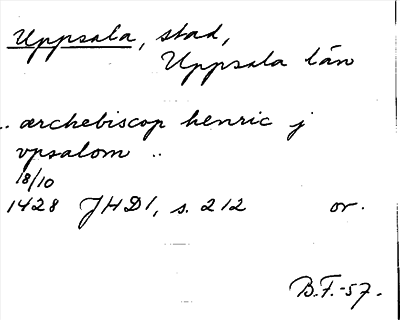 Uppsala, stad,
Uppsala län
.. ærchebiscop henric j
vpsalom ..
18/10
1428 JHD 1, s. 212 or.
B.F.-57.